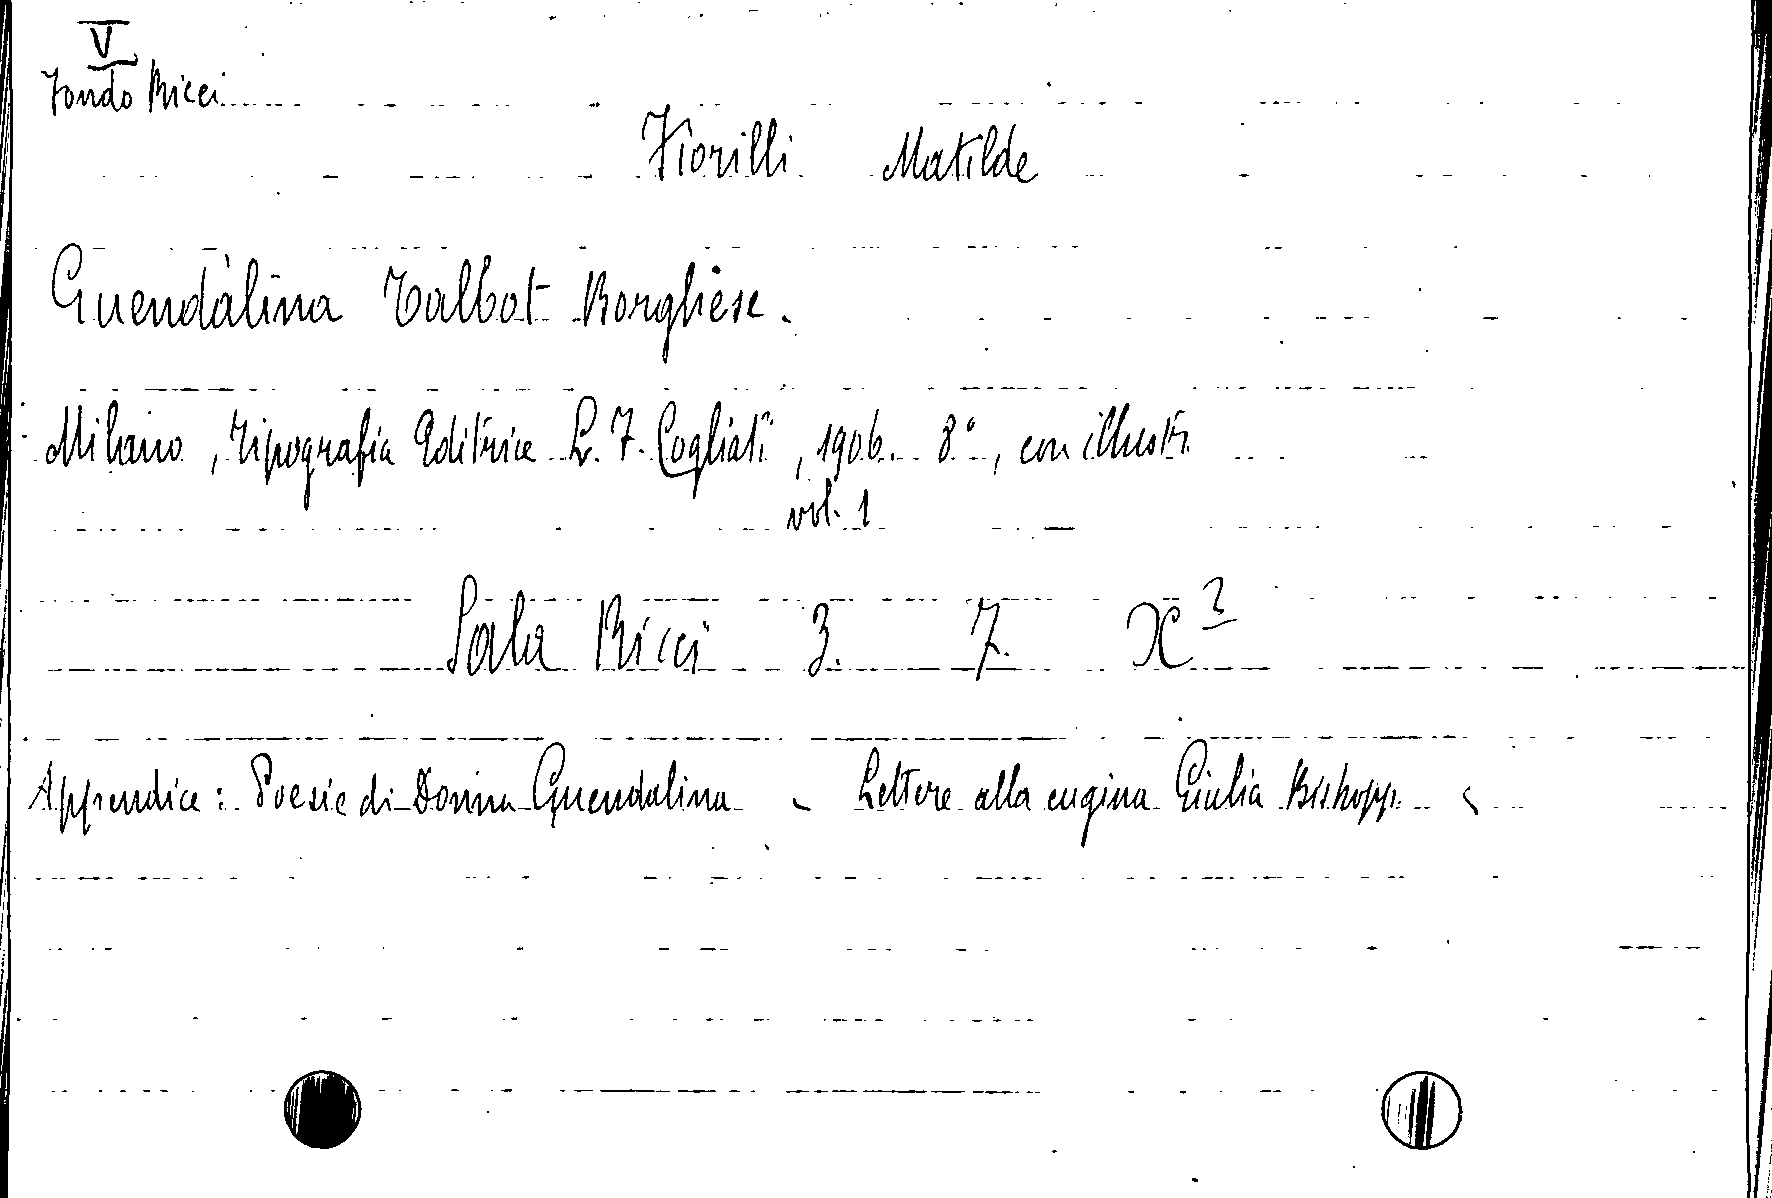 V
Fondo Ricci
Fiorilli Matilde
Guendalina Talbot Borghese.
Milano, Tipografia Editrice L. F. Cogliati, 1906. 8°, con illustr.
vol. 1
Sala Ricci 3. 7. X²
Appendice: Poesie di Donna Guendalina - Lettere alla cugina Giulia Bishopp.